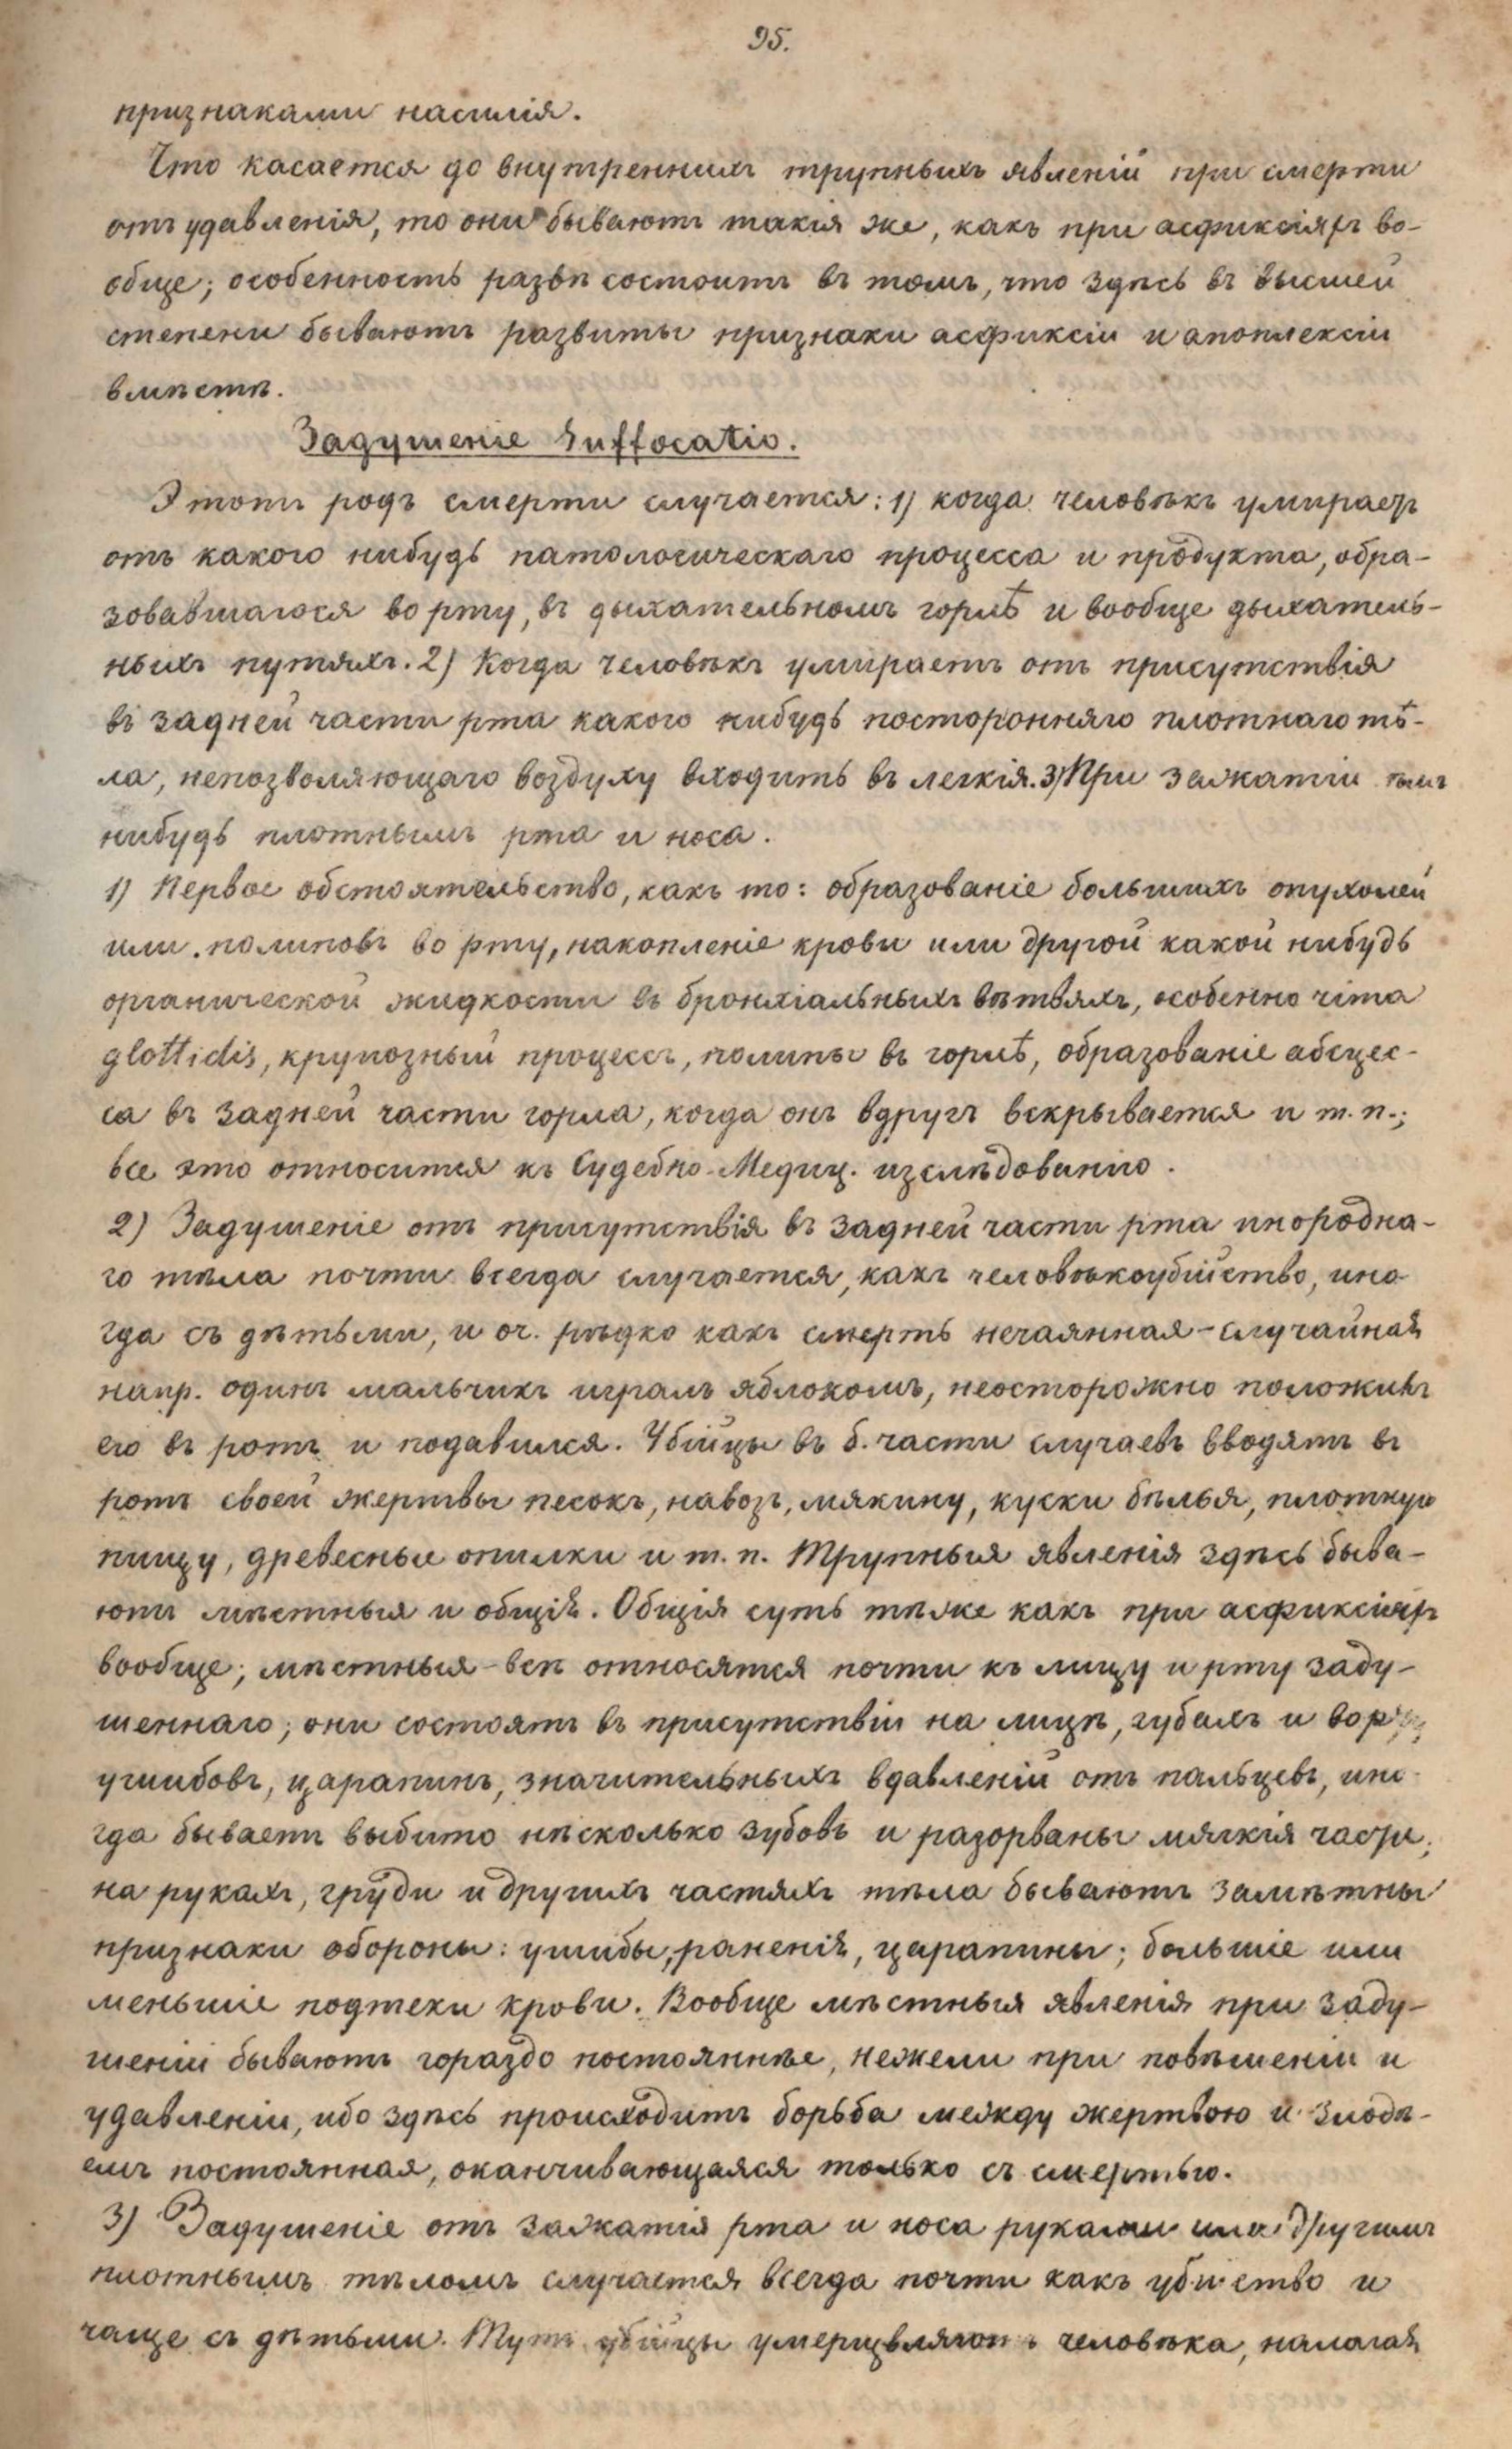 95.
признаками насилія.
Что касается до внутреннихъ трупныхъ явленій при смерти
отъ удавленія, то они бываютъ такія же, какъ при асфиксіяхъ во-
обще; особенность развѣ состоитъ въ томъ, что здѣсь въ высшей
степени бываютъ развиты признаки асфиксіи и апоплексіи
вмѣстѣ.
Задушеніе Suffocatio.
Этотъ родъ смерти случается: 1) когда человѣкъ умираетъ
отъ какого нибудь патологическаго процесса и продукта, обра-
зовавшагося во рту, въ дыхательномъ горлѣ и вообще дыхатель-
ныхъ путяхъ. 2) Когда человѣкъ умираетъ отъ присутствія
въ задней части рта какого нибудь посторонняго плотнаго тѣ-
ла, непозволяющаго воздуху входить въ легкія. 3) При зажатіи чѣмъ
нибудь плотнымъ рта и носа.
1) Первое обстоятельство, какъ то: образованіе большихъ опухолей
или полиповъ во рту, накопленіе крови или другой какой нибудь
органической жидкости въ бронхіальныхъ вѣтвяхъ, особенно rima
glottidis, крупозный процессъ, полипы въ горлѣ, образованіе абсцес-
са въ задней части горла, когда онъ вдругъ вскрывается и т. п.;
все это относится къ Судебно-Медиц. изслѣдованію.
2) Задушеніе отъ присутствія въ задней части рта инородна-
го тѣла почти всегда случается, какъ человѣкоубійство, ино-
гда съ дѣтьми, и оч. рѣдко какъ смерть нечаянная-случайная
напр. одинъ мальчикъ игралъ яблокомъ, неосторожно положивъ
его въ ротъ и подавился. Убійцы въ б. части случаевъ вводятъ въ
ротъ своей жертвы песокъ, навозъ, мякину, куски бѣлья, плотную
пищу, древесные опилки и т. п. Трупныя явленія здѣсь быва-
ютъ мѣстныя и общія. Общія суть тѣже какъ при асфиксіяхъ
вообще; мѣстныя - всѣ относятся почти къ лицу и рту заду-
шеннаго; они состоятъ въ присутствіи на лицѣ, губахъ и во рту
ушибовъ, царапинъ, значительныхъ вдавленій отъ пальцевъ, ино-
гда бываетъ выбито нѣсколько зубовъ и разорваны мягкія части;
на рукахъ, груди и другихъ частяхъ тѣла бываютъ замѣтны
признаки обороны: ушибы, раненія, царапины; большіе или
меньшіе подтеки крови. Вообще мѣстныя явленія при заду-
шеніи бываютъ гораздо постояннѣе, нежели при повѣшеніи и
удавленіи, ибо здѣсь происходитъ борьба между жертвою и злодѣ-
емъ постоянная, оканчивающаяся только съ смертью.
3) Задушеніе отъ зажатія рта и носа руками или другимъ
плотнымъ тѣломъ случается всегда почти какъ убійство и
чаще съ дѣтьми. Тутъ убійцы умерщвляютъ человѣка, налагая